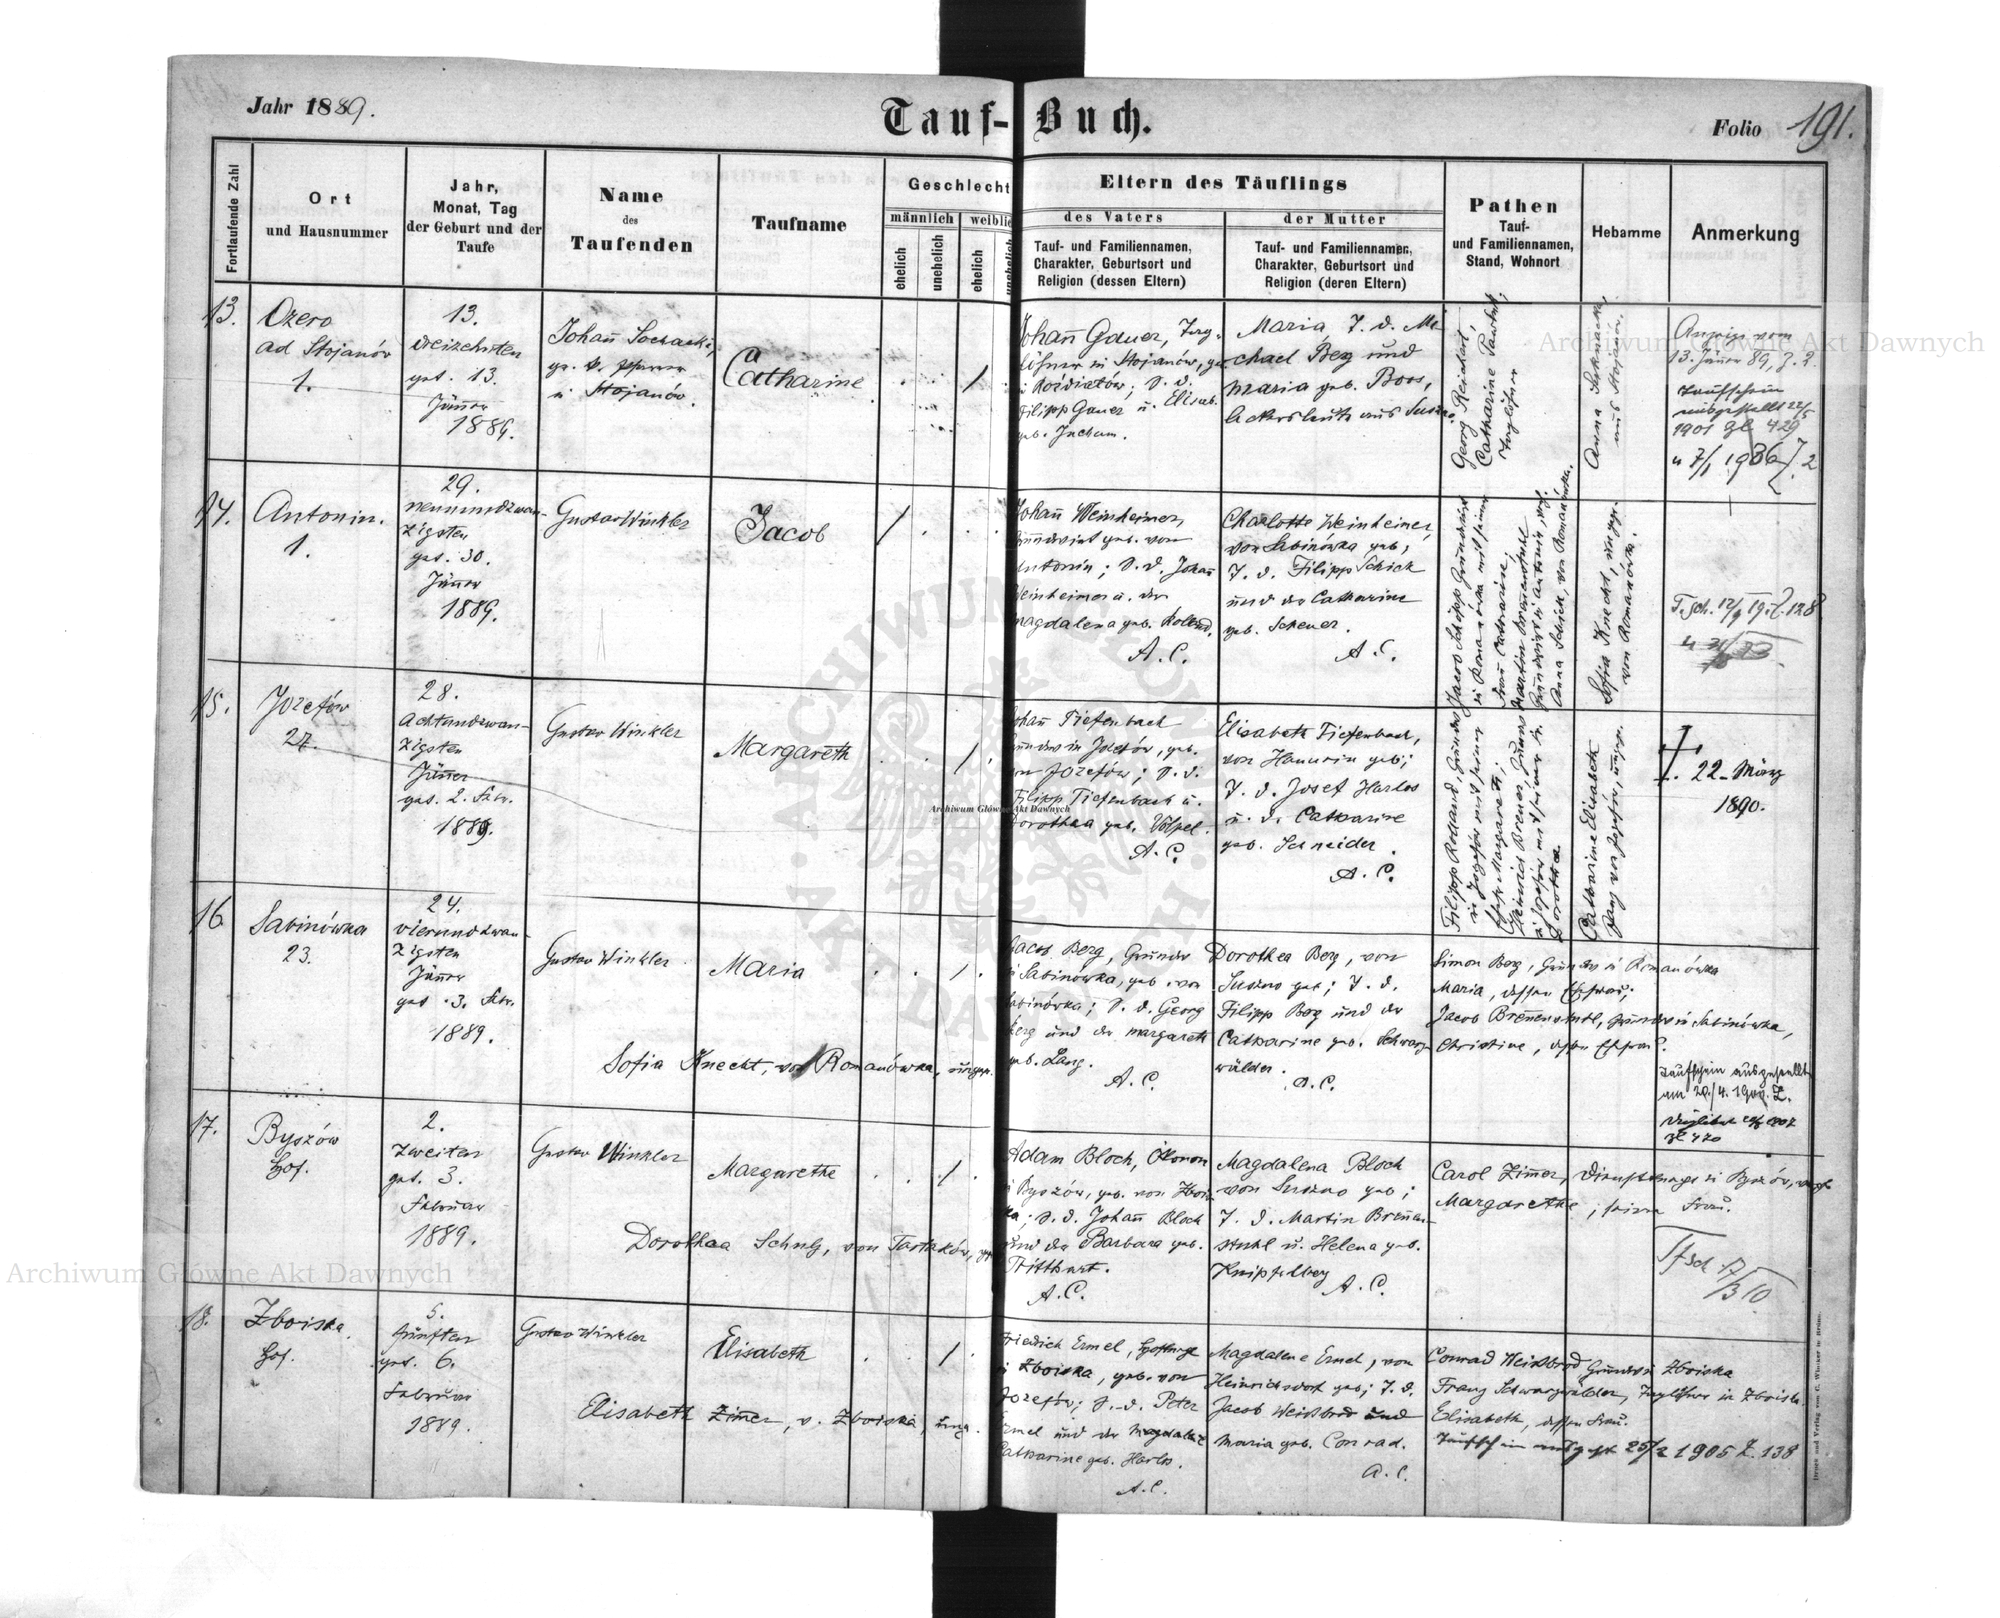 Jahr 1889.
Tauf-Buch.
Folio 191.
Fortlaufende Zahl
Ort
und Hausnummer
Jahr,
Monat, Tag
der Geburt und der
Taufe
Name
des
Taufenden
Taufname
Geschlecht
männlich
weiblich
ehelich
unehelich
ehelich
unehelich
Eltern des Täuflings
des Vaters
Tauf- und Familiennamen,
Charakter, Geburtsort und
Religion (dessen Eltern)
der Mutter
Tauf- und Familiennamen,
Charakter, Geburtsort und
Religion (deren Eltern)
Pathen
Tauf-
und Familiennamen,
Stand, Wohnort
Hebamme
Anmerkung
13.
Ozero
ad Stojanów
1.
13.
dreizehnten
get. 13.
Jänner
1889.
Johann
gr. k. Pfarrer
in Stojanów.
Catharine
/
Johann Gauer, Tag-
löhner in Stojanów, geb.
S. d.
Filipp Gauer u. Elisab.
geb. Juchum.
Maria T. d. Mi-
chael Berg und
Maria geb. Boos,
Ackersleute aus
Georg
Catharine
Taglöhner
Anna
aus Stojanów.
Anzeige vom
13. Jänner 89, Z. 2.
Taufschein
ausgestellt 22/5
1901 Zl 429
u 7/1 1936 Z. 2
14.
Antonin.
1.
29.
neunundzwan-
zigsten
get. 30.
Jänner
1889.
Gustav Winkler
Jacob
/
Johann Weinheimer,
Grundwirt geb. von
Antonin; S. d. Johann
Weinheimer u. der
Magdalena geb. Rolland.
A. C.
Charlotte Weinheimer,
von Sabinówka geb;
T. d. Filipp Schick
und der Catharine
geb. Scheuer.
A. C.
Jacob
in Romanówka mit seiner
Frau Catharine;
Martin Brennenstuhl
Grundwirt in Antonin,
Anna Schick, von Romanówka.
Sofia Knecht, ungepr.
von Romanówka.
T. sch. 12/9 19 Z. 128
15.
Jozefów
27.
28.
achtundzwan-
zigsten
Jänner
get. 2. Febr.
1889.
Gustav Winkler
Margareth
/
Johann Tiefenbach
Grundw in Jozefów, geb.
von Jozefów; S. d.
Filipp Tiefenbach u.
Dorothea geb. Völpel.
A. C.
Elisabeth Tiefenbach,
von Hanunin geb;
T. d. Josef Harlos
u. d. Catharine
geb. Schneider.
A. C.
Filipp Rolland, Grundw
in Jozefów mit seiner
Ehefr Margareth;
Heinrich Brenner, Grundw
in Jozefów mit seiner Fr.
Dorothea.
Catharine Elisabeth
von Jozefów, ungepr.
†. 22. März
1890.
16
Sabinówka
23.
24.
vierundzwan-
zigsten
Jänner
get. 3. Febr.
1889.
Gustav Winkler
Maria
/
Sofia Knecht, von Romanówka, ungepr.
Jacob Berg, Grundw
in Sabinówka, geb. von
Sabinówka; S. d. Georg
Berg und der Margareth
geb. Lang.
A. C.
Dorothea Berg, von
Suszno geb; T. d.
Filipp Berg und der
Catharine geb. Schwarz-
wälder.
A. C.
Simon Berg, Grundw in Romanówka
Maria, dessen Ehefrau;
Jacob Brennenstuhl, Grundw in Sabinówka,
Christine, dessen Ehefrau.
Taufschein ausgestellt
am 20/4. 1900. Z.
17.
Byszów
Hof.
2.
zweiten
get. 3.
Februar
1889.
Gustav Winkler
Margarethe
/
Dorothea Schulz, von Tartaków,
Adam Bloch, Ökonom
in Byszów, geb. von Zbois-
ka; S. d. Johann Bloch
und der Barbara geb.
Tritthart.
A. C.
Magdalena Bloch
von Suszno geb;
T. d. Martin Brennen-
stuhl u. Helena geb.
Knipfelberg
A. C.
Carol Zimmer, in Byszów,
Margarethe, seine Frau.
Tfsch. 17/3 10
18.
Zboiska
Hof.
5.
fünften
get. 6.
Februar
1889.
Gustav Winkler
Elisabeth
/
Elisabeth Zimmer, v. Zboiska, ung.
Friedrich Ermel,
in Zboiska, geb. von
Jozefów; S. d. Peter
Ermel und der Magdalene
Catharine geb. Harlos.
A. C.
Magdalene Ermel, von
Heinrichsdorf geb; T. d.
Jacob Weißbrod und
Maria geb. Conrad.
A. C.
Conrad Weißbrod Grundw in Zboiska
Franz Schwarzwälder, Taglöhner in Zboiska
Elisabeth, dessen Frau.
Taufschein ausgest 25/2 1905 Z. 138
Druck und Verlag von C. Winiker in Brünn.
Archiwum Główne Akt Dawnych
Archiwum Główne Akt Dawnych
Archiwum Główne Akt Dawnych
ARCHIWUM GŁÓWNE AKT DAWNYCH